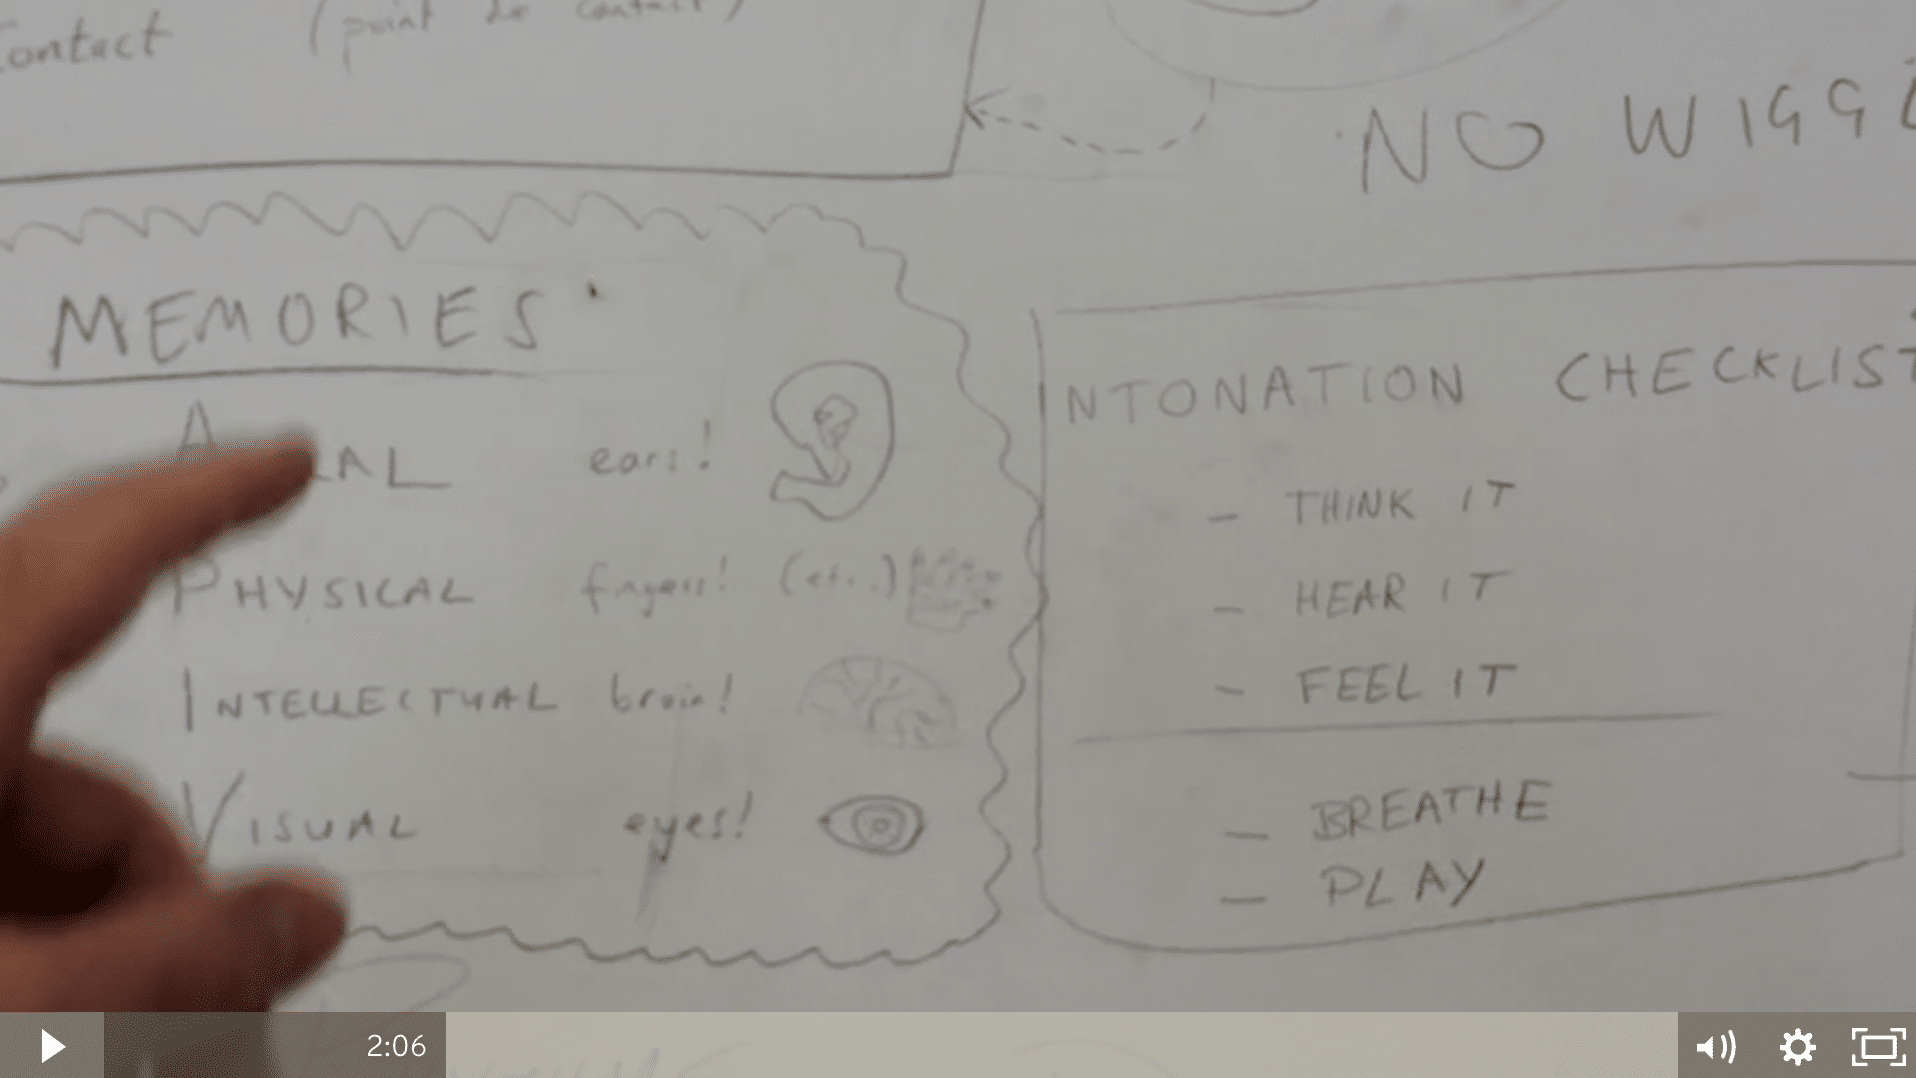 Contact (point de contact)
NO WIGG
MEMORIES
AL ears!
PHYSICAL fingers! (etc..)
INTELLECTUAL brain!
VISUAL eyes!
INTONATION CHECKLIST
- THINK IT
- HEAR IT
- FEEL IT
- BREATHE
- PLAY
2:06